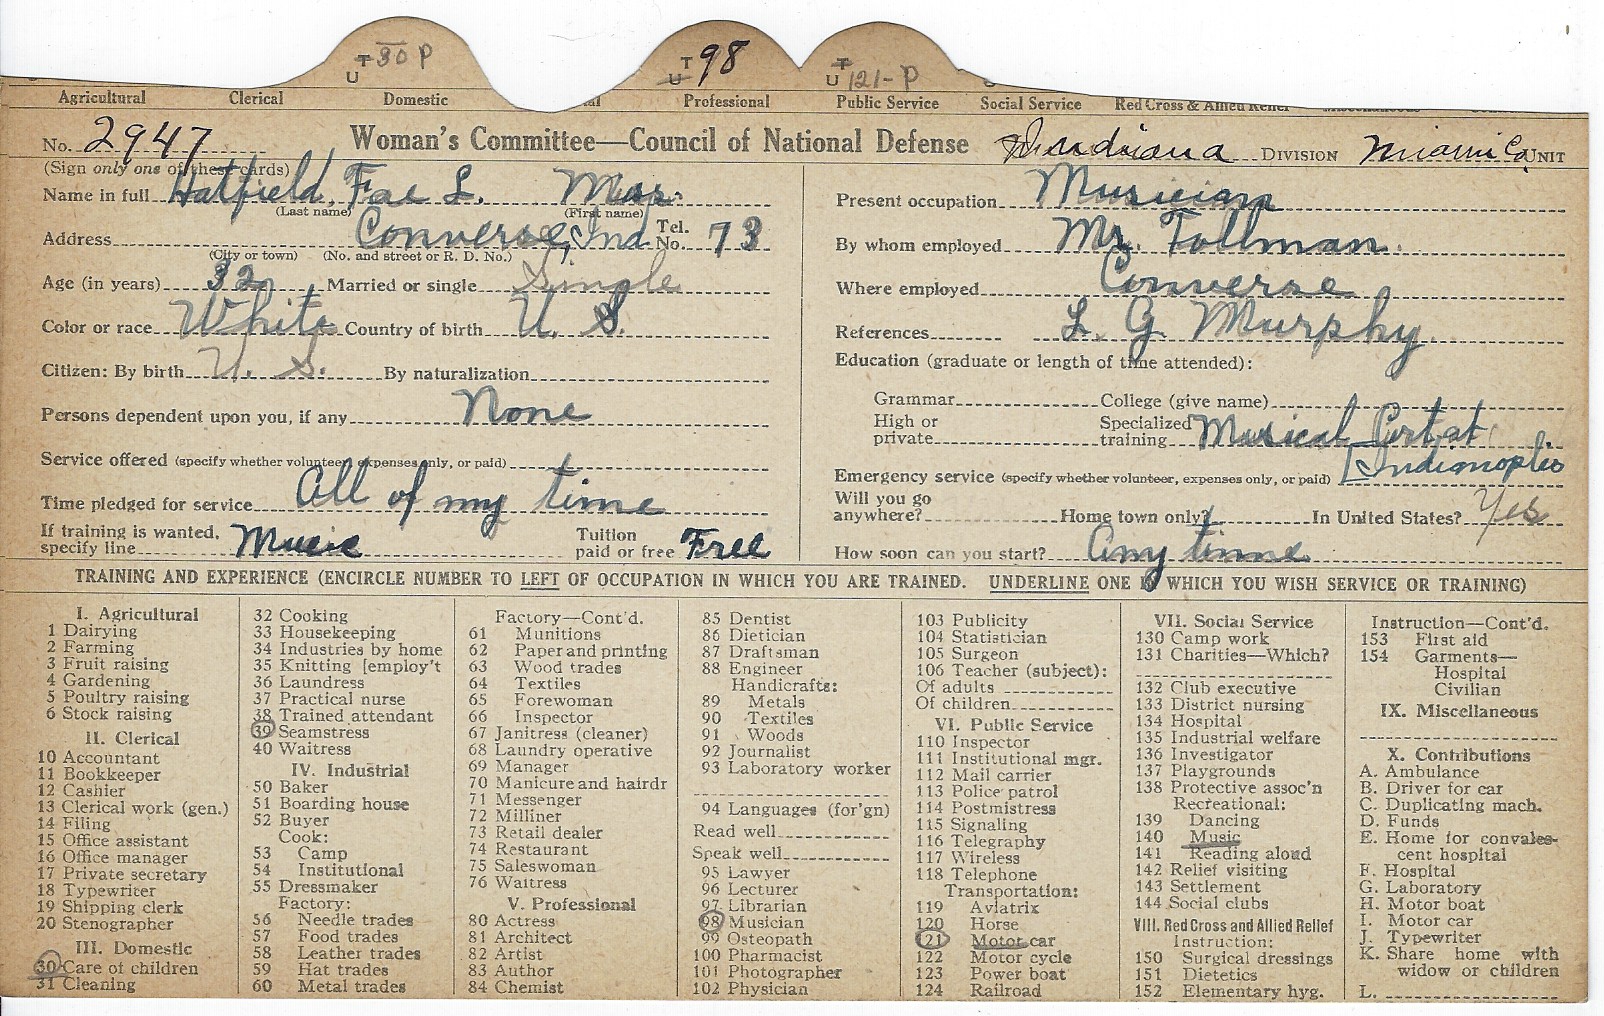 T 30 P
U
T 98
U
T
U 121-P
Agricultural Clerical Domestic Professional Public Service Social Service Red Cross & Allied Relief
No. 2947 Woman's Committee—Council of National Defense Indiana DIVISION Miami Co. UNIT
(Sign only one of these cards)
Name in full Hatfield, Fae L.
(Last name) (First name)
Address Converse, Ind. Tel. No. 73
(City or town) (No. and street or R. D. No.)
Age (in years) 32 Married or single Single
Color or race White Country of birth U. S.
Citizen: By birth U. S. By naturalization
Persons dependent upon you, if any None
Service offered (specify whether volunteer, expenses only, or paid)
Time pledged for service All of my time
If training is wanted, specify line Music Tuition paid or free Free
Present occupation Musician
By whom employed Mr. Tollman.
Where employed Converse
References L. G. Murphy.
Education (graduate or length of time attended):
Grammar College (give name)
High or private Specialized training Musical
Emergency service (specify whether volunteer, expenses only, or paid)
Will you go anywhere? Home town only? In United States? Yes
How soon can you start? Any time
TRAINING AND EXPERIENCE (ENCIRCLE NUMBER TO LEFT OF OCCUPATION IN WHICH YOU ARE TRAINED. UNDERLINE ONE IN WHICH YOU WISH SERVICE OR TRAINING)
I. Agricultural
1 Dairying
2 Farming
3 Fruit raising
4 Gardening
5 Poultry raising
6 Stock raising
II. Clerical
10 Accountant
11 Bookkeeper
12 Cashier
13 Clerical work (gen.)
14 Filing
15 Office assistant
16 Office manager
17 Private secretary
18 Typewriter
19 Shipping clerk
20 Stenographer
III. Domestic
30 Care of children
31 Cleaning
32 Cooking
33 Housekeeping
34 Industries by home
35 Knitting [employ't
36 Laundress
37 Practical nurse
38 Trained attendant
39 Seamstress
40 Waitress
IV. Industrial
50 Baker
51 Boarding house
52 Buyer
Cook:
53 Camp
54 Institutional
55 Dressmaker
Factory:
56 Needle trades
57 Food trades
58 Leather trades
59 Hat trades
60 Metal trades
Factory—Cont'd.
61 Munitions
62 Paper and printing
63 Wood trades
64 Textiles
65 Forewoman
66 Inspector
67 Janitress (cleaner)
68 Laundry operative
69 Manager
70 Manicure and hairdr
71 Messenger
72 Milliner
73 Retail dealer
74 Restaurant
75 Saleswoman
76 Waitress
V. Professional
80 Actress
81 Architect
82 Artist
83 Author
84 Chemist
85 Dentist
86 Dietician
87 Draftsman
88 Engineer
Handicrafts:
89 Metals
90 Textiles
91 Woods
92 Journalist
93 Laboratory worker
94 Languages (for'gn)
Read well
Speak well
95 Lawyer
96 Lecturer
97 Librarian
98 Musician
99 Osteopath
100 Pharmacist
101 Photographer
102 Physician
103 Publicity
104 Statistician
105 Surgeon
106 Teacher (subject):
Of adults
Of children
VI. Public Service
110 Inspector
111 Institutional mgr.
112 Mail carrier
113 Police patrol
114 Postmistress
115 Signaling
116 Telegraphy
117 Wireless
118 Telephone
Transportation:
119 Aviatrix
120 Horse
121 Motor car
122 Motor cycle
123 Power boat
124 Railroad
VII. Social Service
130 Camp work
131 Charities—Which?
132 Club executive
133 District nursing
134 Hospital
135 Industrial welfare
136 Investigator
137 Playgrounds
138 Protective assoc'n
Recreational:
139 Dancing
140 Music
141 Reading aloud
142 Relief visiting
143 Settlement
144 Social clubs
VIII. Red Cross and Allied Relief
Instruction:
150 Surgical dressings
151 Dietetics
152 Elementary hyg.
Instruction—Cont'd.
153 First aid
154 Garments—
Hospital
Civilian
IX. Miscellaneous
X. Contributions
A. Ambulance
B. Driver for car
C. Duplicating mach.
D. Funds
E. Home for convales-
cent hospital
F. Hospital
G. Laboratory
H. Motor boat
I. Motor car
J. Typewriter
K. Share home with
widow or children
L.